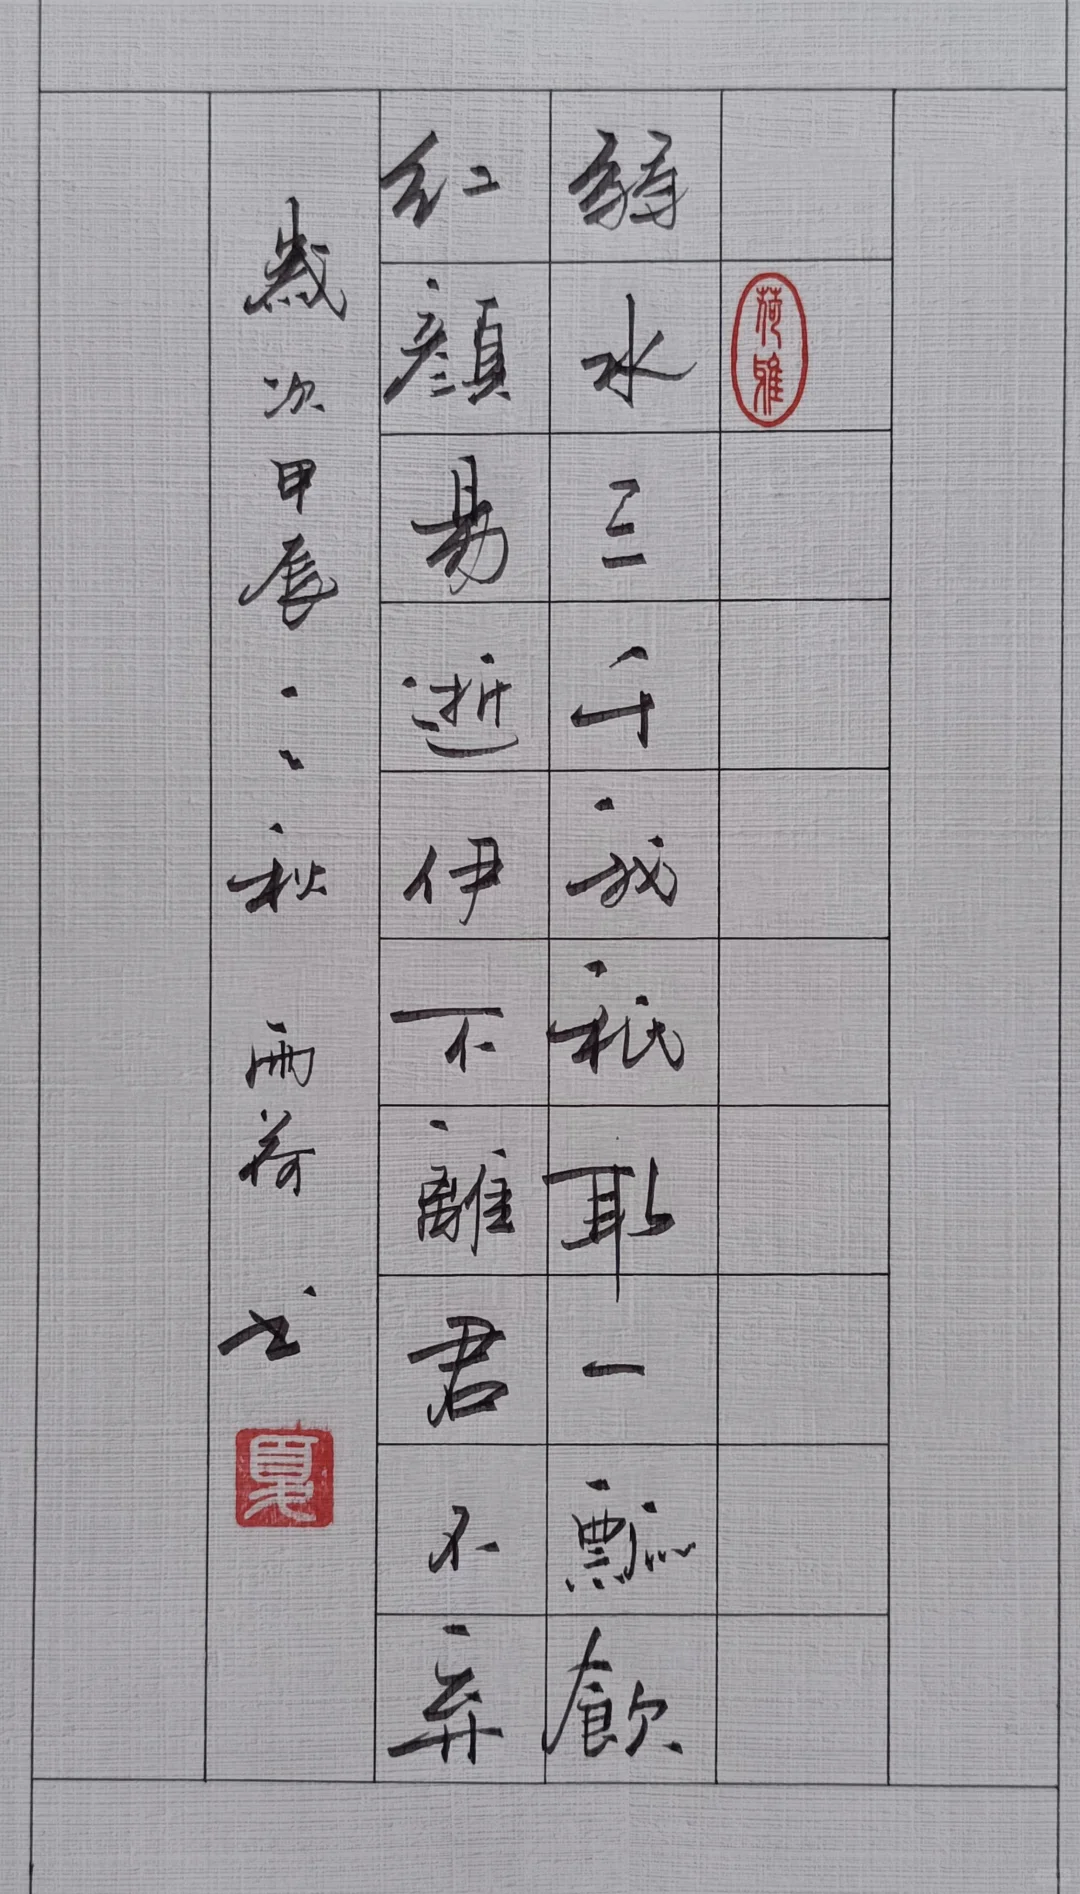 弱水三千我祇取一瓢飲
紅顏易逝伊不離君不弃
歲次甲辰之秋 雨荷 书
荷雅
夏